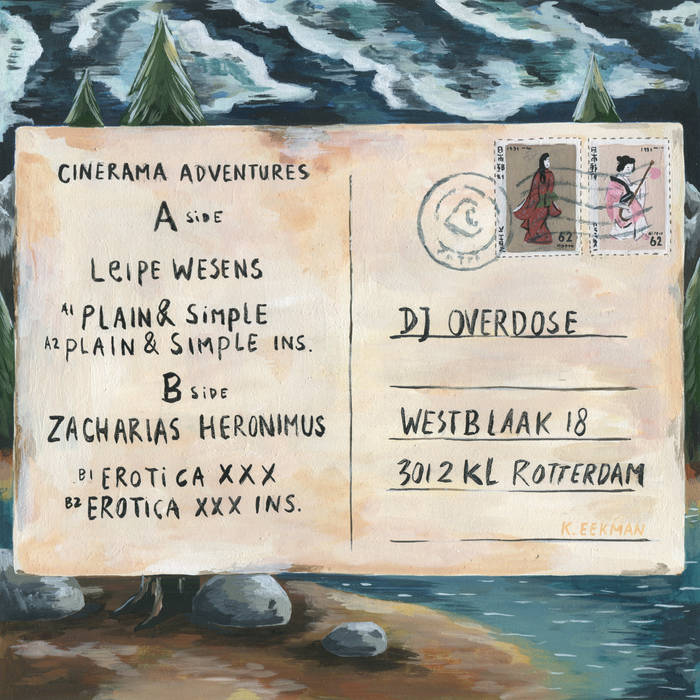 CINERAMA ADVENTURES
A SIDE
LEIPE WESENS
A1 PLAIN & SIMPLE
A2 PLAIN & SIMPLE INS.
B SIDE
ZACHARIAS HERONIMUS
B1 EROTICA XXX
B2 EROTICA XXX INS.
1931
62
1931
62
DJ OVERDOSE
WESTBLAAK 18
3012 KL ROTTERDAM
K. EEKMAN